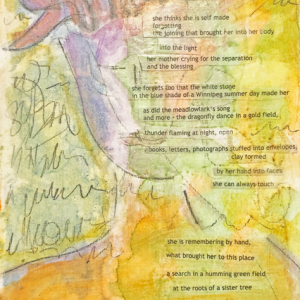 she thinks she is self made
forgetting
the joining that brought her into her body
into the light
her mother crying for the separation
and the blessing
she forgets too that the white stone
in the blue shade of a Winnipeg summer day made her
as did the meadowlark's song
and more - the dragonfly dance in a gold field,
thunder flaming at night, open
books, letters, photographs stuffed into envelopes,
clay formed
by her hand into faces
she can always touch
she is remembering by hand,
what brought her to this place
a search in a humming green field
at the roots of a sister tree